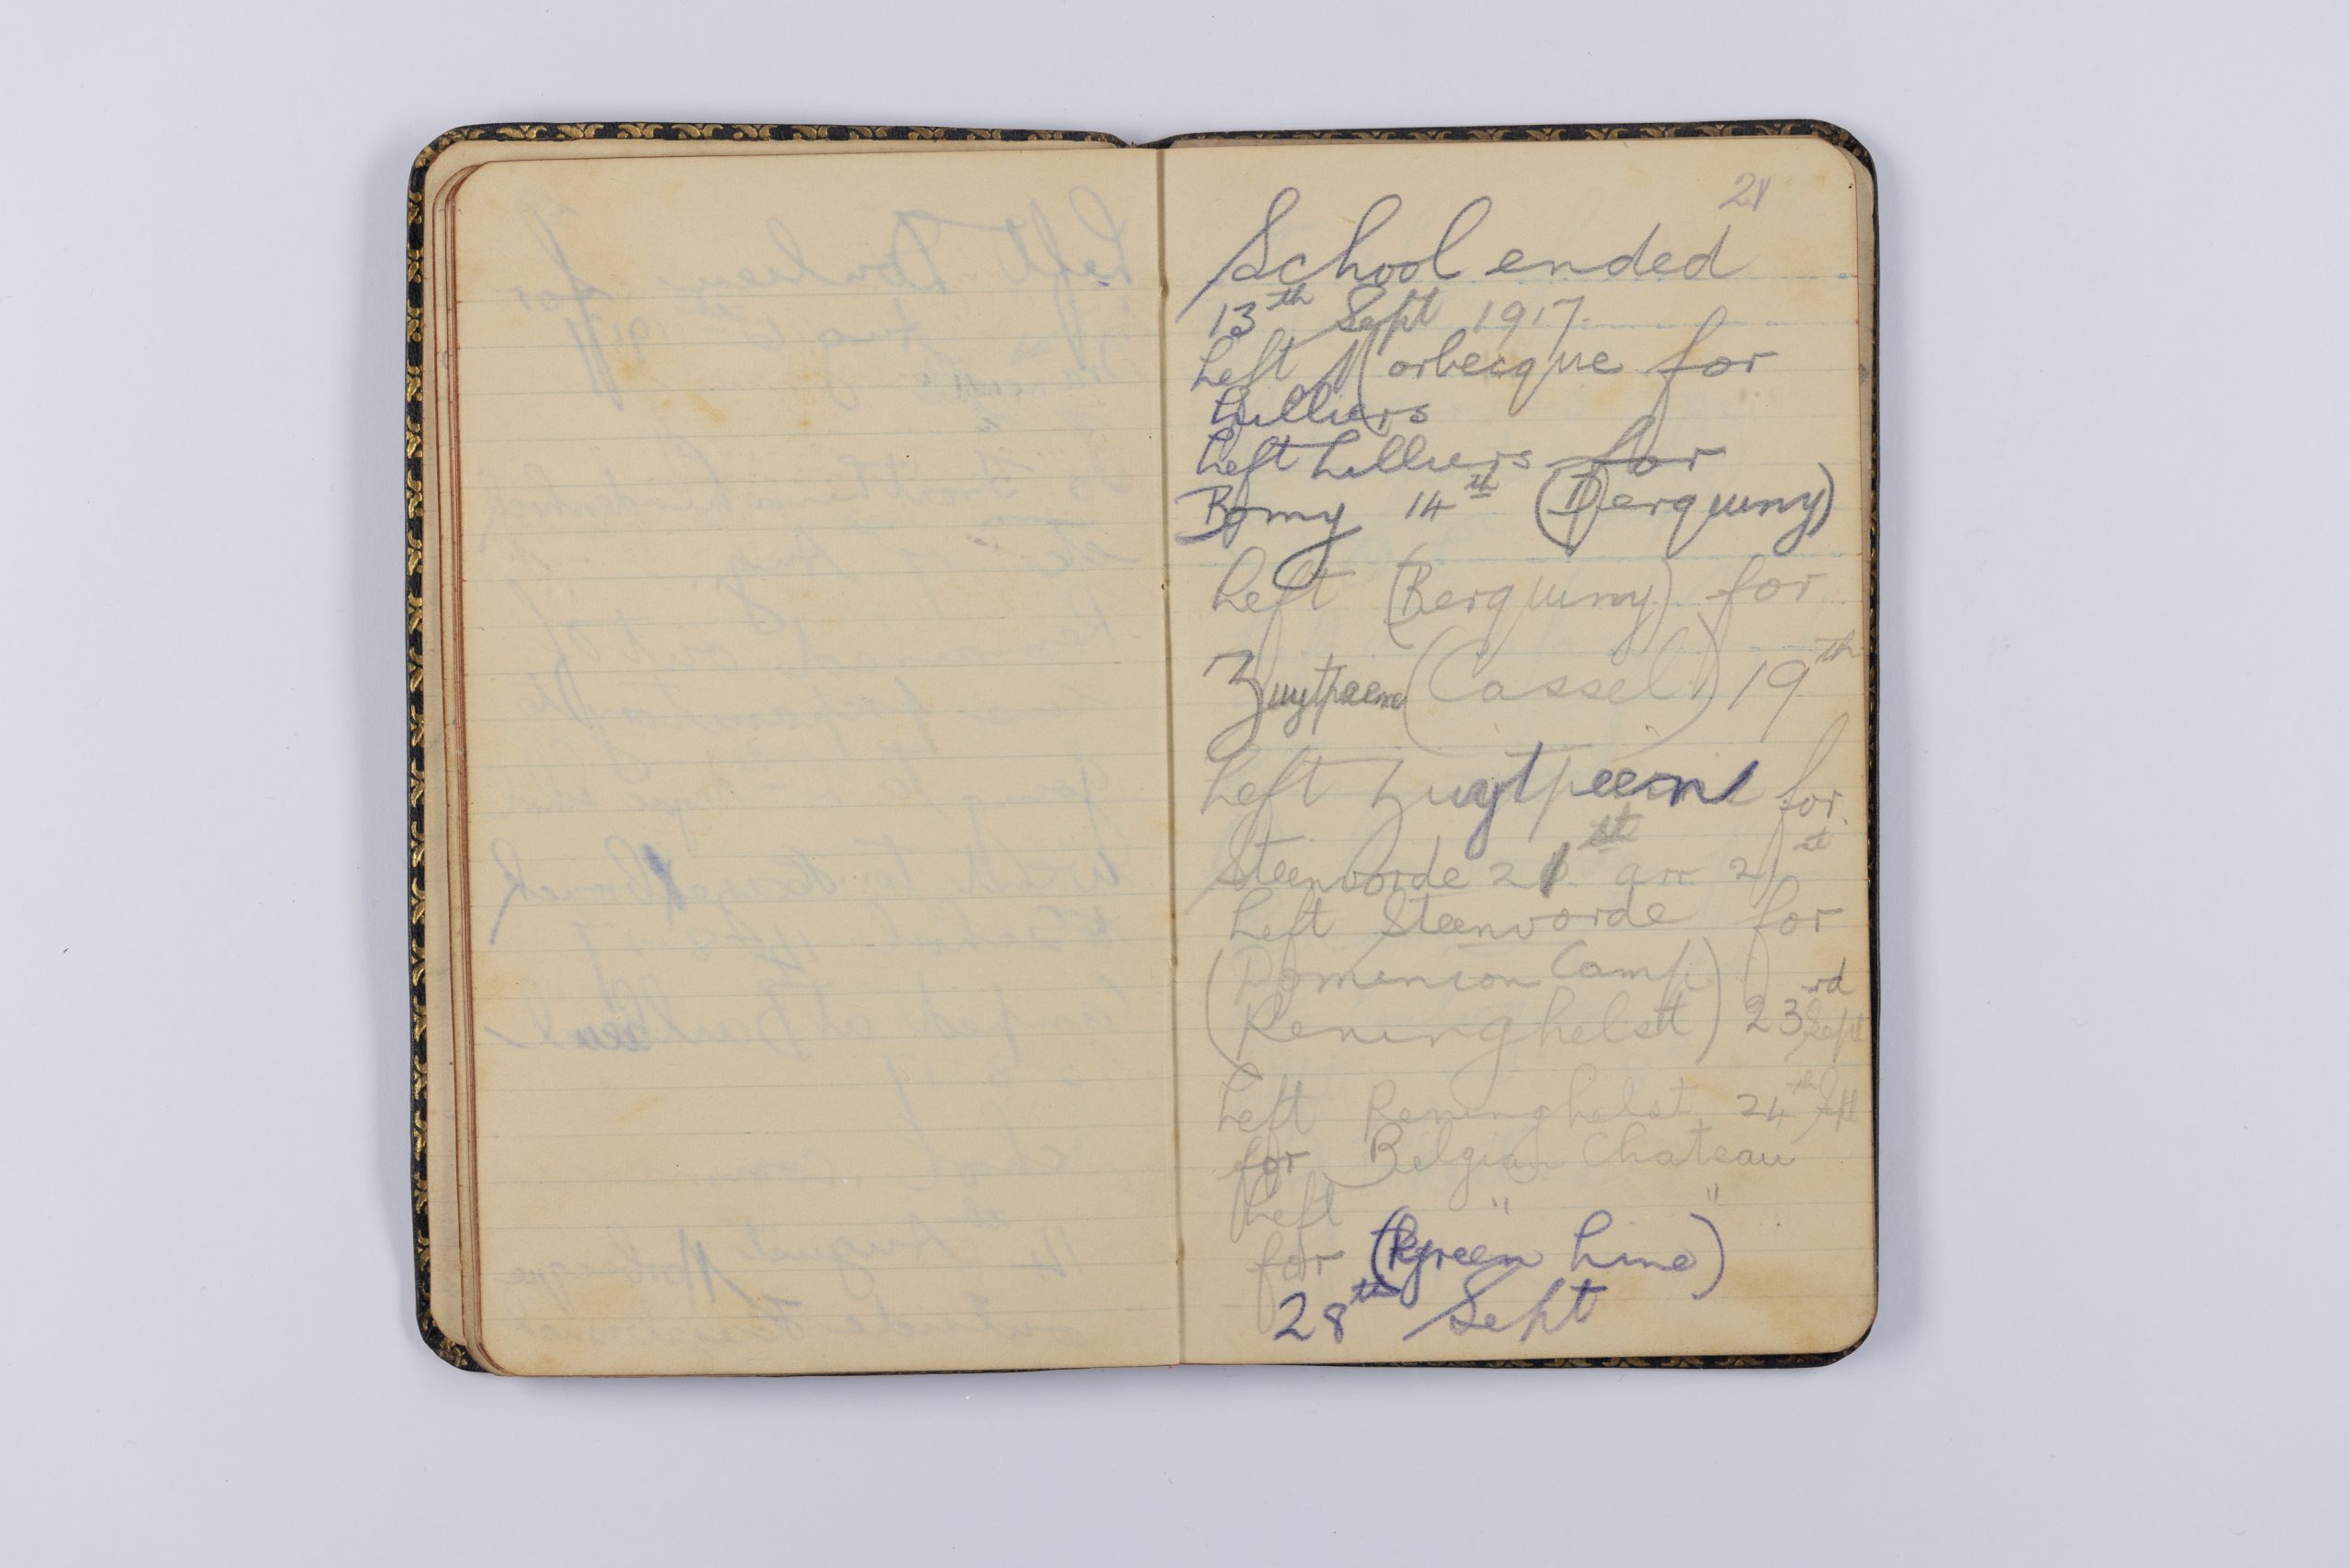 21
School ended
13th Sept 1917
Left Morbecque for
Lilliers
Left Lilliers for
Bomy 14th (Berquiny)
Left (Berquiny) for
Zuytpeene (Cassel) 19th
Left Zuytpeene for
Steenvorde 21st arr 21st
Left Steenvorde for
(Dominion Camp)
(Reninghelst) 23rd Sept
Left Reninghelst 24th Sept
for Belgian Chateau
Left " "
for (Green Line)
28th Sept